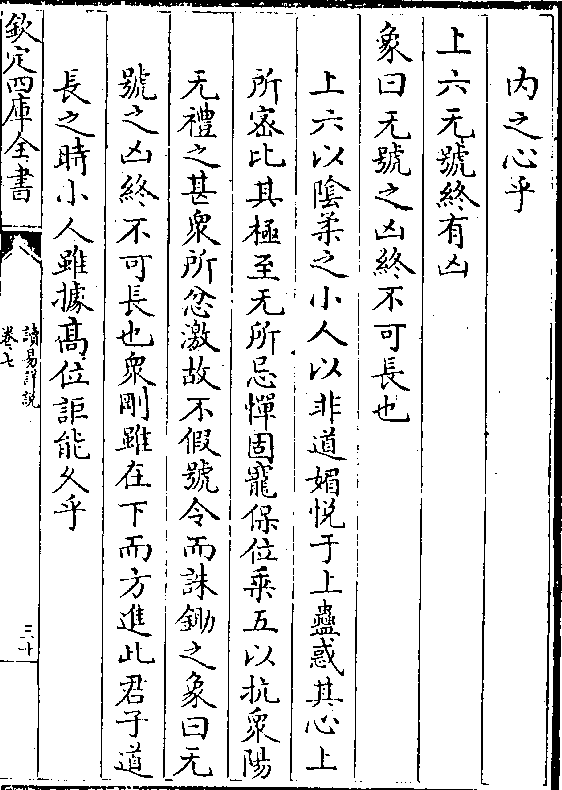 内之心乎
上六无號終有凶
象曰无號之凶終不可長也
上六以陰柔之小人以非道媚悦于上蠱惑其心上
所宻比其極至无所忌憚固寵保位乗五以抗衆陽
无禮之甚衆所忿激故不假號令而誅鋤之象曰无
號之凶終不可長也衆剛雖在下而方進此君子道
長之時小人雖據髙位詎能乆乎
欽定四庫全書
讀易詳説
卷七
三十